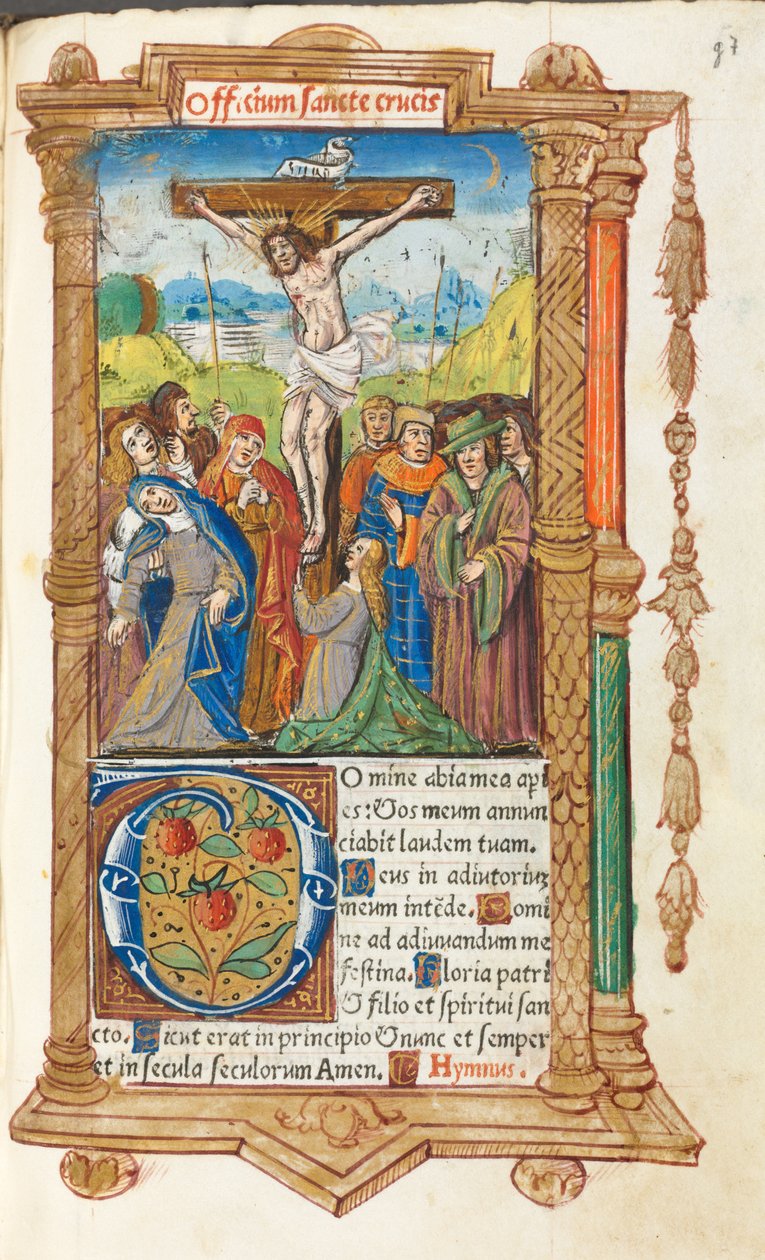 97
Officium sancte crucis
Domine labia mea api
es: Et os meum annun
ciabit laudem tuam.
Deus in adiutoriuʒ
meum intēde. Domi
ne ad adiuuandum me
festina. Gloria patri
et filio et spiritui san
cto. Sicut erat in principio et nunc et semper
et in secula seculorum Amen. Hymnus.